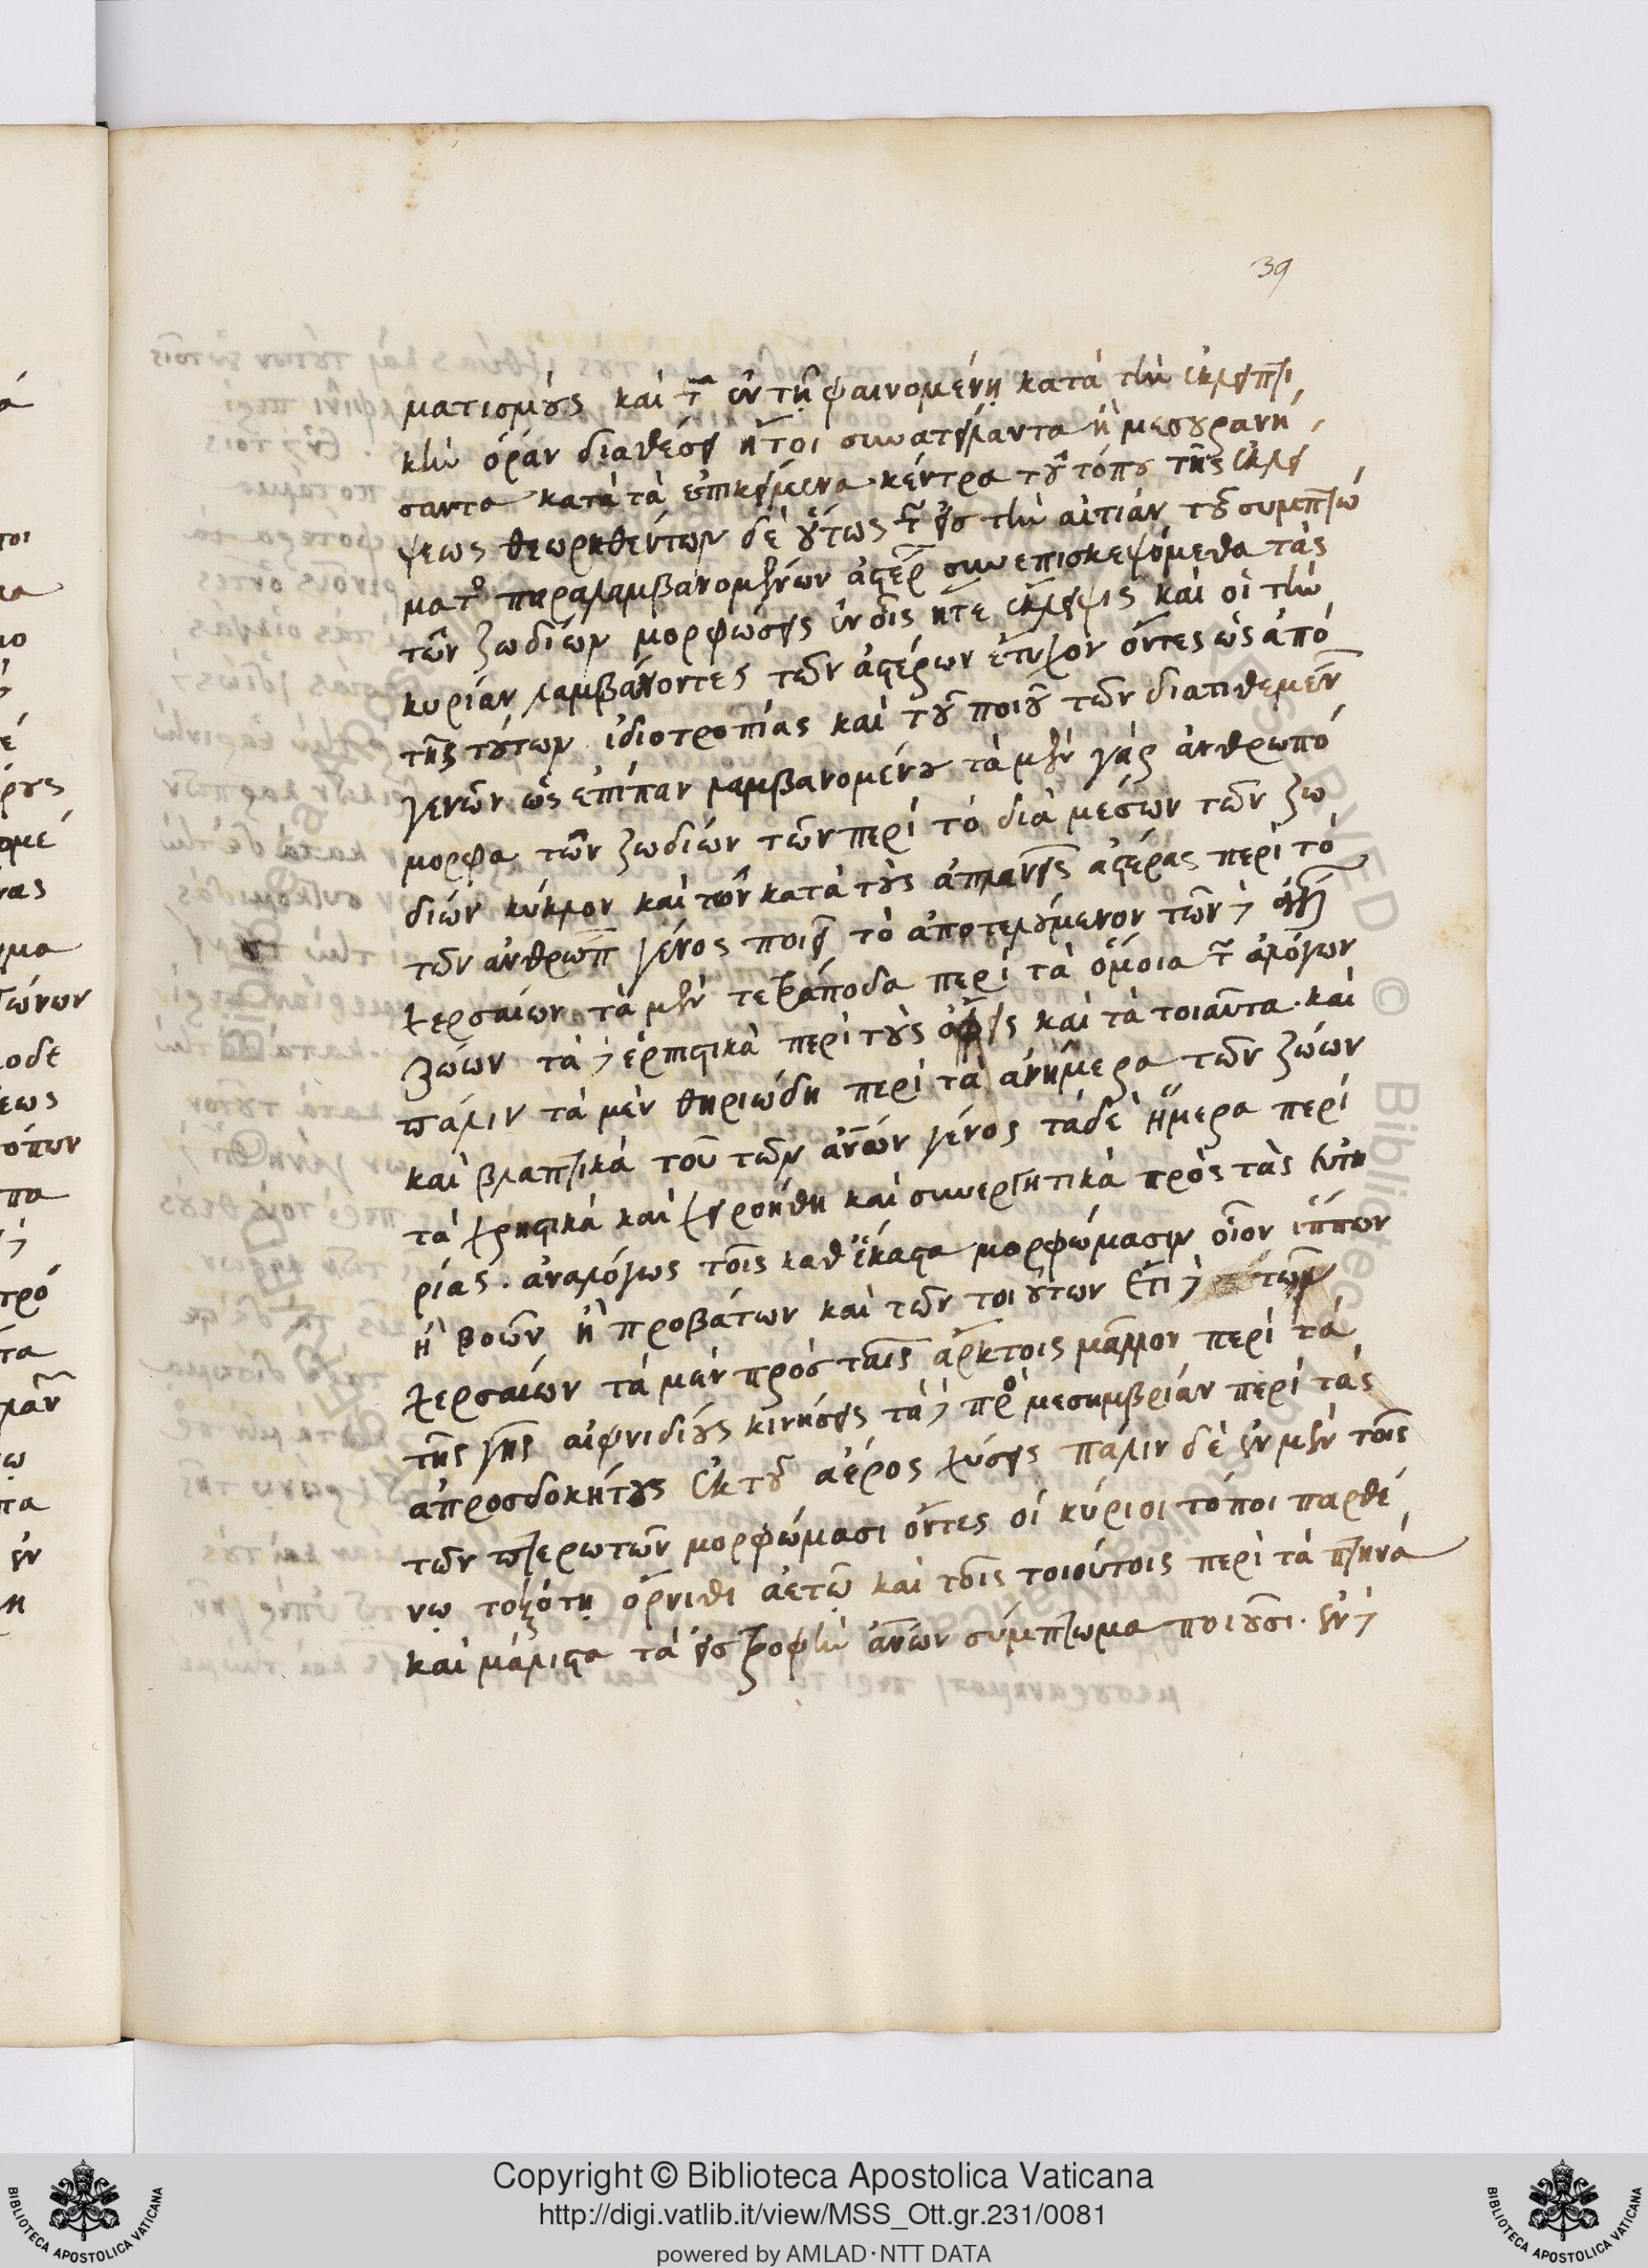 39
ματισμοὺς καὶ τ ἐν τῇ φαινομένῃ κατὰ τὴν ἐκλειπτι
κὴν ὁρὰν διαθέσει ἤτοι συνατείλαντα ἢ μεσουρανή
σαντα κατὰ τὰ ἐπικείμενα κέντρα τοῦ τόπου τῆς ἐκλεί
ψεως θεωρηθέντων δὲ οὕτως τ εἰς τὴν αἰτίαν τοῦ συμπτώ
ματο παραλαμβανομένων ἀστερ συνεπισκεψόμεθα τὰς
τῶν ζωδίων μορφώσεις ἐν οἷς ἥτε ἔκλειψις καὶ οἱ τὴν
κυρίαν λαμβάνοντες τῶν ἀστέρων ἔτυχον ὄντες ὡς ἀπὸ
τῆς τούτων ἰδιοτροπίας καὶ τοῦ ποιοῦ τῶν διατιθεμέν
γενῶν ὡς ἐπίπαν λαμβανομένου τὰ μὲν γὰρ ἀνθρωπό
μορφα τῶν ζωδίων τῶν περὶ τὸ διὰ μέσων τῶν ζω
δίων κύκλον καὶ τῶν κατὰ τοὺς ἀπλανεῖς ἀστέρας περὶ τὸ
τῶν ἀνθρώπ γένος ποιεῖ τὸ ἀποτελούμενον τῶν δ
χερσαίων τὰ μὲν τετράποδα περὶ τὰ ὅμοια τ ἀλόγων
ζώων τὰ δ ἑρπιστικὰ περὶ τοὺς ὄφεις καὶ τὰ τοιαῦτα. καὶ
πάλιν τὰ μὲν θηριώδη περὶ τὰ ἀνήμερα τῶν ζώων
καὶ βλαπτικὰ τοῦ τῶν ἀνῶν γένος τὰ δὲ ἥμερα περὶ
τὰ χρηστικὰ καὶ χειροήθη καὶ συνεργητικὰ πρὸς τὰς εὐετη
ρίας. ἀναλόγως τοῖς καθ ἕκαστα μορφώμασιν οἷον ἵππων
ἢ βοῶν ἢ προβάτων καὶ τῶν τοιούτων ἔτι δ τῶν
χερσαίων τὰ μὲν πρὸς ταῖς ἄρκτοις μᾶλλον περὶ τὰς
τῆς γῆς αἰφνιδίους κινήσεις τὰ δ προ μεσημβρίαν περὶ τὰς
ἀπροσδοκήτους ἐκ τοῦ ἀέρος χύσεις πάλιν δὲ ἐν μὲν τοῖς
τῶν πτερωτῶν μορφώμασι ὄντες οἱ κύριοι τόποι παρθέ
νῳ τοξότῃ ὄρνιθι ἀετῷ καὶ τοῖς τοιούτοις περὶ τὰ πτηνὰ
καὶ μάλιστα τὰ εἰς τροφὴν ἀνῶν σύμπτωμα ποιοῦσι. ἐν δ
Copyright © Biblioteca Apostolica Vaticana
http://digi.vatlib.it/view/MSS_Ott.gr.231/0081
powered by AMLAD·NTT DATA
BIBLIOTECA APOSTOLICA VATICANA
BIBLIOTECA APOSTOLICA VATICANA